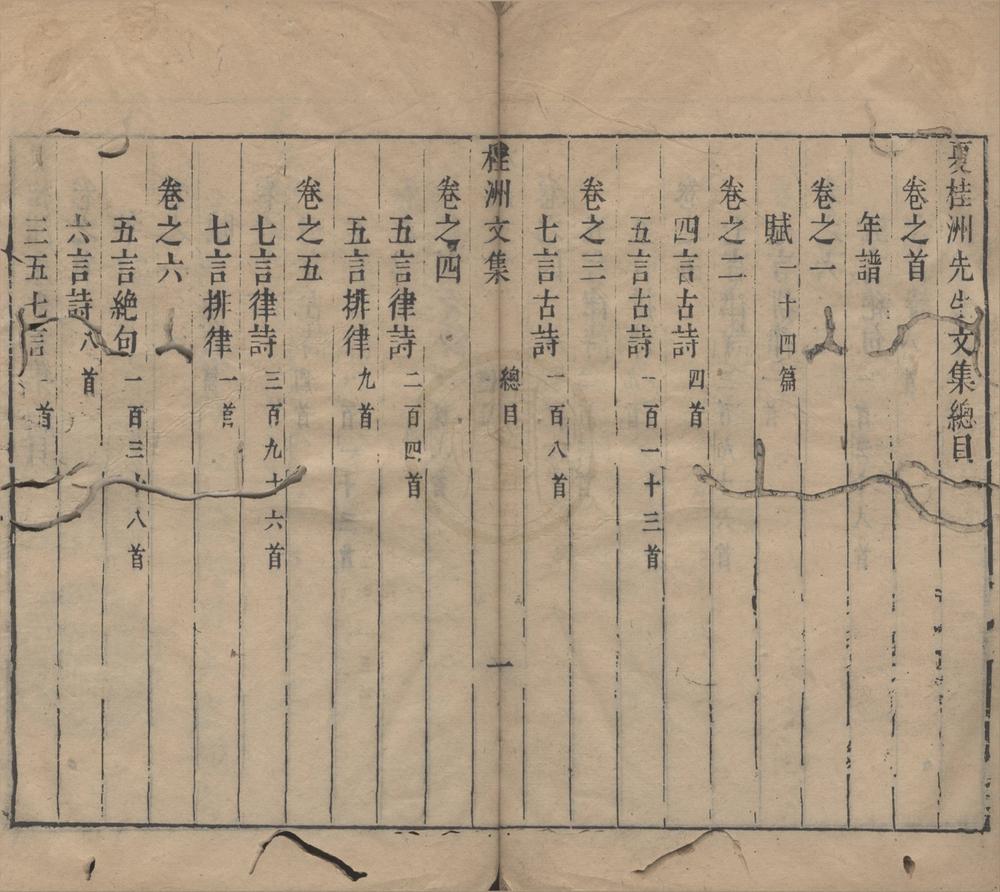 夏桂洲先生文集總目
卷之首
年譜
卷之一
賦 一十四篇
卷之二
四言古詩 四首
五言古詩 一百一十三首
卷之三
七言古詩 一百八首
桂洲文集 總目 一
卷之四
五言律詩 二百四首
五言排律 九首
卷之五
七言律詩 三百九十六首
七言排律 一首
卷之六
五言絕句 一百三十八首
六言詩 八首
三五七言 一首